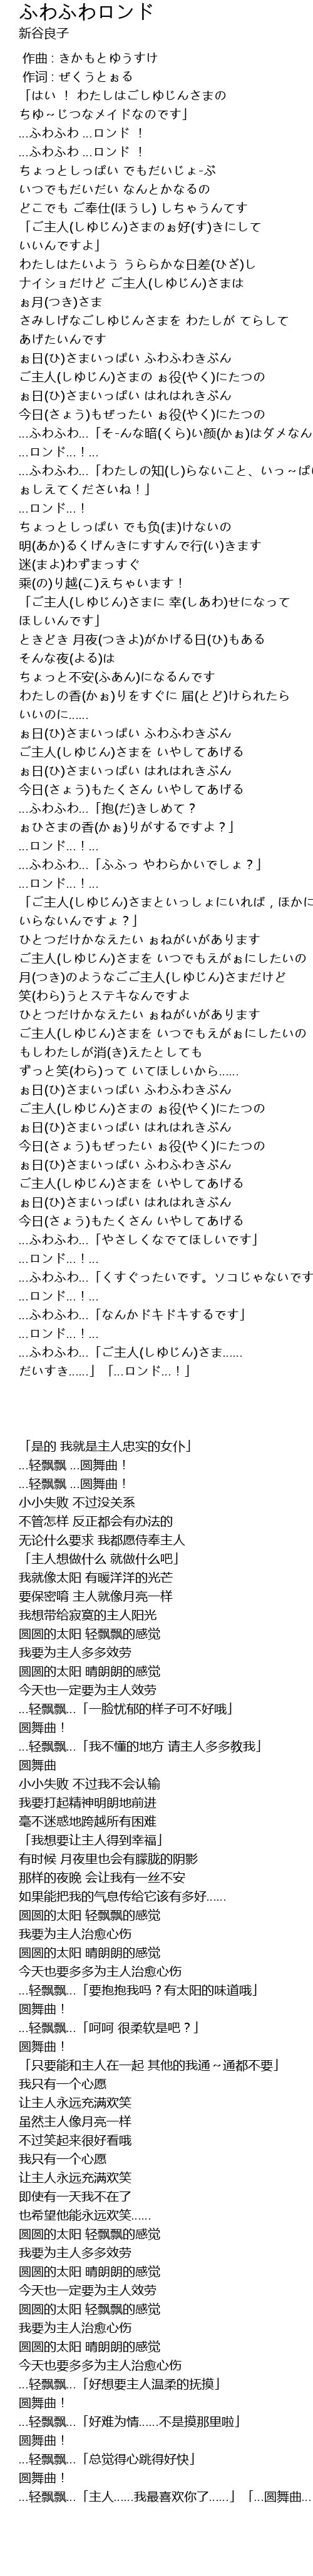 ふわふわロンド
新谷良子
作曲 : きかもとゆうすけ
作词 : ぜくうとぉる
「はい ！ わたしはごしゆじんさまの
ちゆ～じつなメイドなのです」
...ふわふわ ...ロンド ！
...ふわふわ ...ロンド ！
ちょっとしっぱい でもだいじょ-ぶ
いつでもだいだい なんとかなるの
どこでも ご奉仕(ほうし) しちゃうんてす
「ご主人(しゆじん)さまのぉ好(す)きにして
いいんですよ」
わたしはたいよう うららかな日差(ひざ)し
ナイショだけど ご主人(しゆじん)さまは
ぉ月(つき)さま
さみしげなごしゆじんさまを わたしが てらして
あげたいんです
ぉ日(ひ)さまいっぱい ふわふわきぶん
ご主人(しゆじん)さまの ぉ役(やく)にたつの
ぉ日(ひ)さまいっぱい はれはれきぶん
今日(きょう)もぜったい ぉ役(やく)にたつの
...ふわふわ...「そ-んな暗(くら)い颜(かぉ)はダメなん
...ロンド...！...
...ふわふわ...「わたしの知(し)らないこと、いっ～ぱい
ぉしえてくださいね！」
...ロンド...！
ちょっとしっぱい でも负(ま)けないの
明(あか)るくげんきにすすんで行(い)きます
迷(まよ)わずまっすぐ
乘(の)り越(こ)えちゃいます！
「ご主人(しゆじん)さまに 幸(しあわ)せになって
ほしいんです」
ときどき 月夜(つきよ)がかげる日(ひ)もある
そんな夜(よる)は
ちょっと不安(ふあん)になるんです
わたしの香(かぉ)りをすぐに 届(とど)けられたら
いいのに......
ぉ日(ひ)さまいっぱい ふわふわきぶん
ご主人(しゆじん)さまを いやしてあげる
ぉ日(ひ)さまいっぱい はれはれきぶん
今日(きょう)もたくさん いやしてあげる
...ふわふわ...「抱(だ)きしめて？
ぉひさまの香(かぉ)りがするですよ？」
...ロンド...！...
...ふわふわ...「ふふっ やわらかいでしょ？」
...ロンド...！...
「ご主人(しゆじん)さまといっしょにいれば，ほかに
いらないんですょ？」
ひとつだけかなえたい ぉねがいがあります
ご主人(しゆじん)さまを いつでもえがぉにしたいの
月(つき)のようなごご主人(しゆじん)さまだけど
笑(わら)うとステキなんですよ
ひとつだけかなえたい ぉねがいがあります
ご主人(しゆじん)さまを いつでもえがぉにしたいの
もしわたしが消(き)えたとしても
ずっと笑(わら)って いてほしいから......
ぉ日(ひ)さまいっぱい ふわふわきぶん
ご主人(しゆじん)さまの ぉ役(やく)にたつの
ぉ日(ひ)さまいっぱい はれはれきぶん
今日(きょう)もぜったい ぉ役(やく)にたつの
ぉ日(ひ)さまいっぱい ふわふわきぶん
ご主人(しゆじん)さまを いやしてあげる
ぉ日(ひ)さまいっぱい はれはれきぶん
今日(きょう)もたくさん いやしてあげる
...ふわふわ...「やさしくなでてほしいです」
...ロンド...！...
...ふわふわ...「くすぐったいです。ソコじゃないです
...ロンド...！...
...ふわふわ...「なんかドキドキするです」
...ロンド...！...
...ふわふわ...「ご主人(しゆじん)さま......
だいすき......」「...ロンド...！」
「是的 我就是主人忠实的女仆」
...轻飘飘 ...圆舞曲！
...轻飘飘 ...圆舞曲！
小小失败 不过没关系
不管怎样 反正都会有办法的
无论什么要求 我都愿侍奉主人
「主人想做什么 就做什么吧」
我就像太阳 有暖洋洋的光芒
要保密唷 主人就像月亮一样
我想带给寂寞的主人阳光
圆圆的太阳 轻飘飘的感觉
我要为主人多多效劳
圆圆的太阳 晴朗朗的感觉
今天也一定要为主人效劳
...轻飘飘...「一脸忧郁的样子可不好哦」
圆舞曲！
...轻飘飘...「我不懂的地方 请主人多多教我」
圆舞曲
小小失败 不过我不会认输
我要打起精神明朗地前进
毫不迷惑地跨越所有困难
「我想要让主人得到幸福」
有时候 月夜里也会有朦胧的阴影
那样的夜晚 会让我有一丝不安
如果能把我的气息传给它该有多好......
圆圆的太阳 轻飘飘的感觉
我要为主人治愈心伤
圆圆的太阳 晴朗朗的感觉
今天也要多多为主人治愈心伤
...轻飘飘...「要抱抱我吗？有太阳的味道哦」
圆舞曲！
...轻飘飘...「呵呵 很柔软是吧？」
圆舞曲！
「只要能和主人在一起 其他的我通～通都不要」
我只有一个心愿
让主人永远充满欢笑
虽然主人像月亮一样
不过笑起来很好看哦
我只有一个心愿
让主人永远充满欢笑
即使有一天我不在了
也希望他能永远欢笑......
圆圆的太阳 轻飘飘的感觉
我要为主人多多效劳
圆圆的太阳 晴朗朗的感觉
今天也一定要为主人效劳
圆圆的太阳 轻飘飘的感觉
我要为主人治愈心伤
圆圆的太阳 晴朗朗的感觉
今天也要多多为主人治愈心伤
...轻飘飘...「好想要主人温柔的抚摸」
圆舞曲！
...轻飘飘...「好难为情......不是摸那里啦」
圆舞曲！
...轻飘飘...「总觉得心跳得好快」
圆舞曲！
...轻飘飘...「主人......我最喜欢你了......」「...圆舞曲...